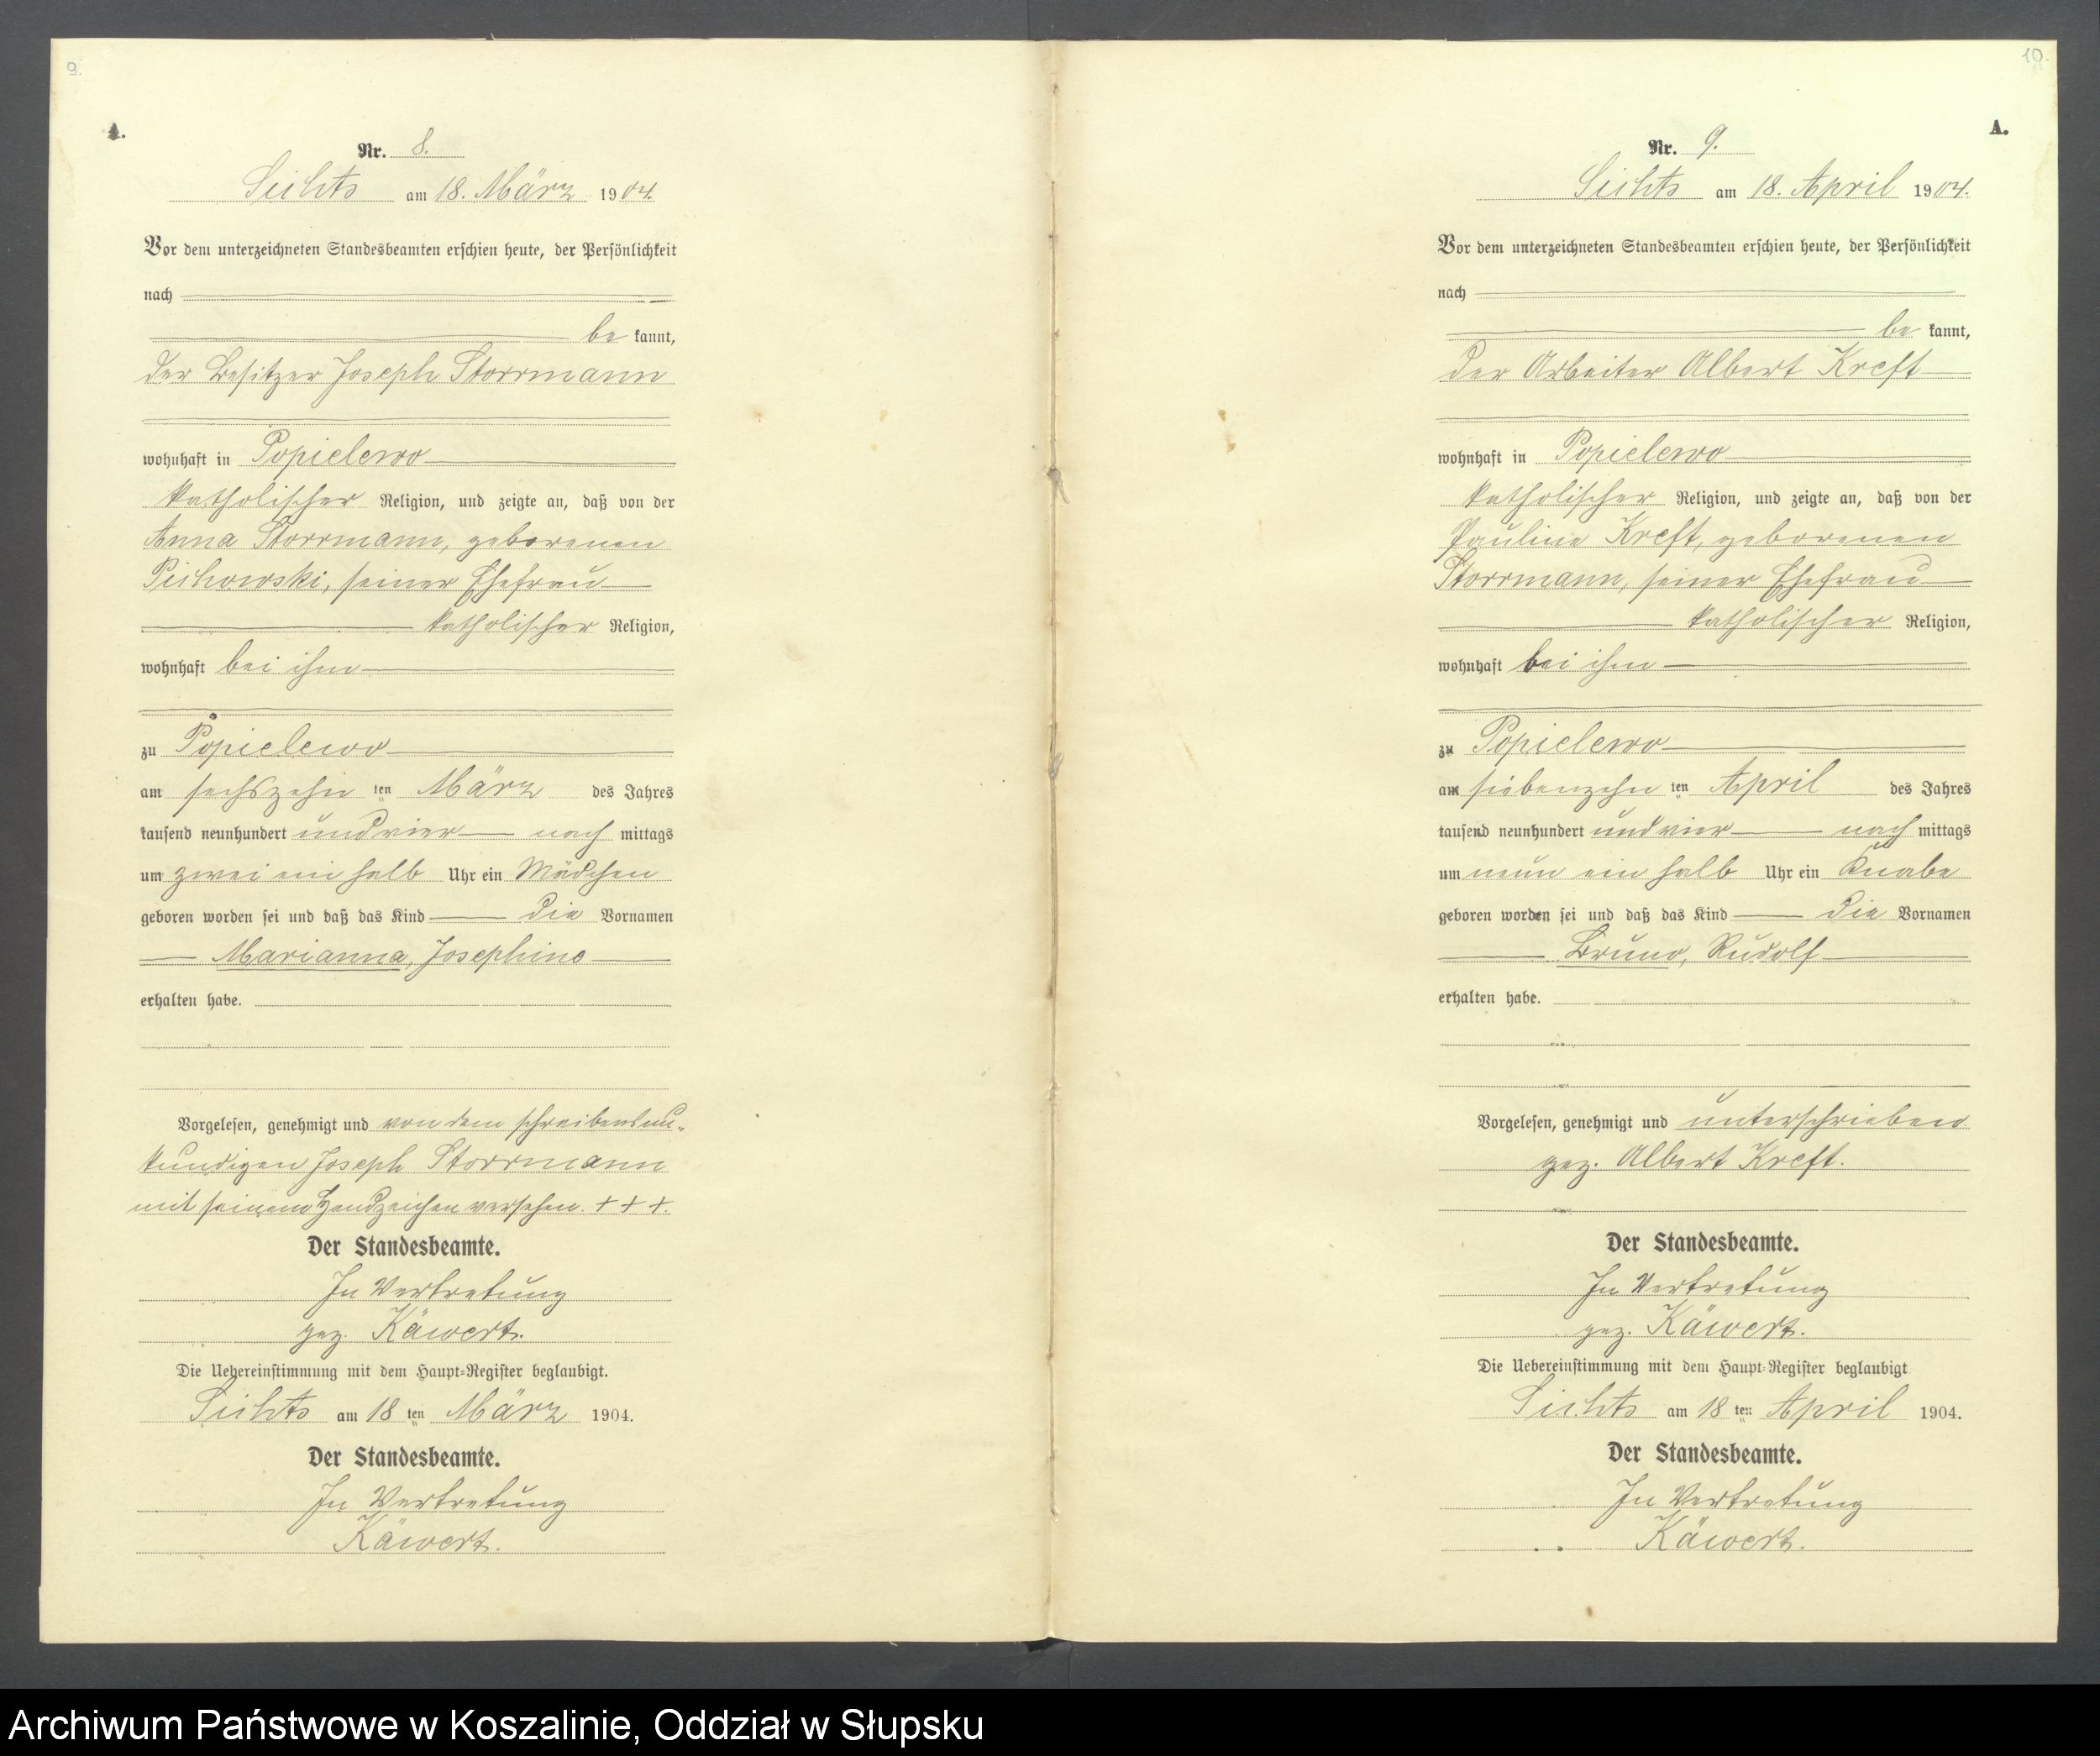 9.
A.
Nr. 8.
Lichts am 18. März 1904.
Vor dem unterzeichneten Standesbeamten erschien heute, der Persönlichkeit
nach
be kannt,
der Besitzer Joseph Storrmann
wohnhaft in Popielewo
katholischer Religion, und zeigte an, daß von der
Anna Storrmann, geborenen
Pichowski, seiner Ehefrau
katholischer Religion,
wohnhaft bei ihm
zu Popielewo
am sechszehn ten März des Jahres
tausend neunhundert und vier nach mittags
um zwei ein halb Uhr ein Mädchen
geboren worden sei und daß das Kind die Vornamen
Marianna, Josephine
erhalten habe.
Vorgelesen, genehmigt und von dem schreibensun-
kundigen Joseph Storrmann
mit seinem Handzeichen versehen. + + +.
Der Standesbeamte.
In Vertretung
gez. Käwert.
Die Uebereinstimmung mit dem Haupt-Register beglaubigt.
Lichts am 18 ten März 1904.
Der Standesbeamte.
In Vertretung
Käwert.
10.
A.
Nr. 9.
Lichts am 18. April 1904.
Vor dem unterzeichneten Standesbeamten erschien heute, der Persönlichkeit
nach
be kannt,
der Arbeiter Albert Kreft
wohnhaft in Popielewo
katholischer Religion, und zeigte an, daß von der
Pauline Kreft, geborenen
Storrmann, seiner Ehefrau
katholischer Religion,
wohnhaft bei ihm
zu Popielewo
am siebenzehn ten April des Jahres
tausend neunhundert und vier nach mittags
um neun ein halb Uhr ein Knabe
geboren worden sei und daß das Kind die Vornamen
Bruno, Rudolf
erhalten habe.
Vorgelesen, genehmigt und unterschrieben
gez. Albert Kreft.
Der Standesbeamte.
In Vertretung
gez. Käwert.
Die Uebereinstimmung mit dem Haupt-Register beglaubigt
Lichts am 18 ten April 1904.
Der Standesbeamte.
In Vertretung
Käwert.
Archiwum Państwowe w Koszalinie, Oddział w Słupsku